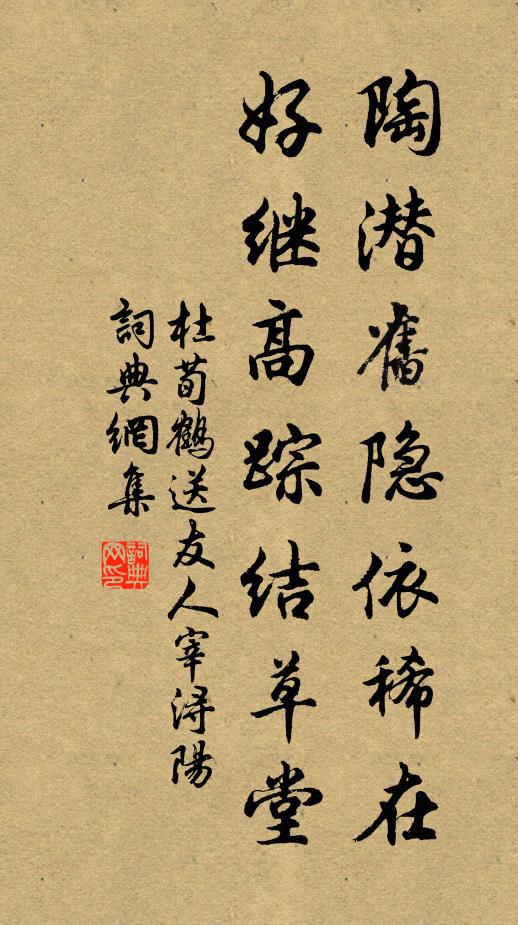 陶潜舊隐依稀在
好继高踪结草堂
杜荀鶴送友人宰潯陽
詞典網集
詞典网印